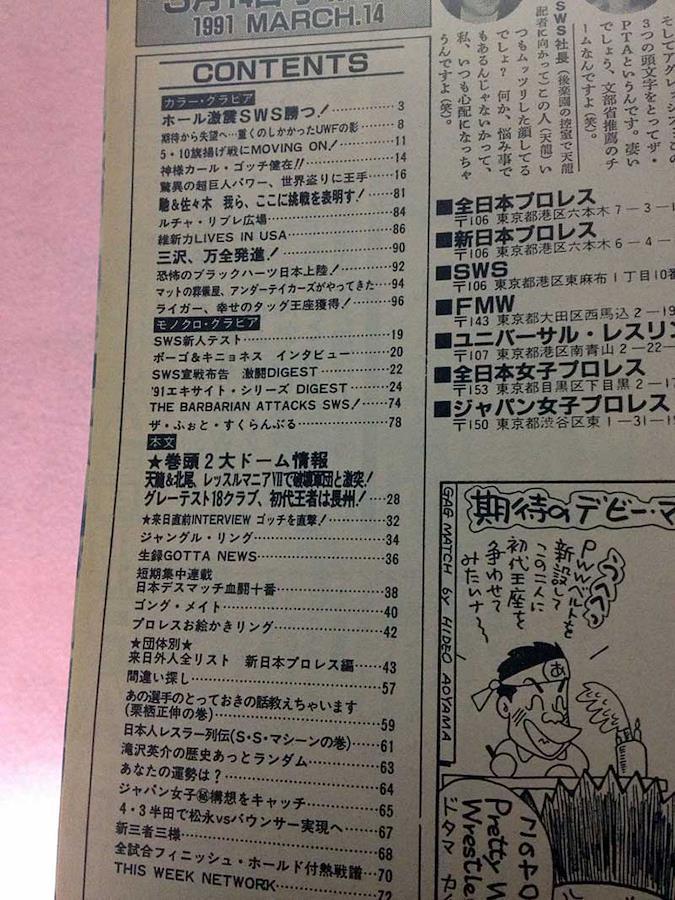 1991 MARCH.14
CONTENTS
カラー・グラビア
ホール激震SWS勝つ!………3
期待から失望へ…重くのしかかったUWFの影……8
5・10旗揚げ戦にMOVING ON!………11
神様カール・ゴッチ健在!!………14
驚異の超巨人パワー、世界盗りに王手……16
馳&佐々木 我ら、ここに挑戦を表明す!……81
ルチャ・リブレ広場………84
維新力LIVES IN USA………86
三沢、万全発進!………90
恐怖のブラックハーツ日本上陸!………92
マットの葬儀屋、アンダーテイカーズがやってきた…94
ライガー、幸せのタッグ王座獲得!……96
モノクロ・グラビア
SWS新人テスト………19
ボーゴ&キニョネス インタビュー……20
SWS宣戦布告 激闘DIGEST………22
'91エキサイト・シリーズ DIGEST……24
THE BARBARIAN ATTACKS SWS!……74
ザ・ふぉと・すくらんぶる………78
本文
★巻頭2大ドーム情報
天龍&北尾、レッスルマニアⅦで破壊軍団と激突!
グレーテスト18クラブ、初代王者は長州!……28
★来日直前INTERVIEW ゴッチを直撃!……32
ジャングル・リング………34
生録GOTTA NEWS………36
短期集中連載
日本デスマッチ血闘十番………38
ゴング・メイト………40
プロレスお絵かきリング………42
★団体別★
来日外人全リスト 新日本プロレス編……43
間違い探し………57
あの選手のとっておきの話教えちゃいます
(栗栖正伸の巻)………59
日本人レスラー列伝(S・S・マシーンの巻)……61
滝沢英介の歴史あっとランダム………63
あなたの運勢は?………64
ジャパン女子㊙構想をキャッチ………65
4・3半田で松永vsバウンサー実現へ……67
新三者三様………68
全試合フィニッシュ・ホールド付熱戦譜…70
THIS WEEK NETWORK………72
3つの頭文字をとってザ・
PTAというんです。凄い
でしょう、文部省推薦のチ
ームなんですよ(笑)。
SWS社長(後楽園の控室で天龍
記者に向かって)この人(天龍)い
つもムッツリした顔してる
でしょ?何か、悩み事で
もあるんじゃないかって、
私、いつも心配になっちゃ
うんですよ(笑)。
■全日本プロレス
〒106 東京都港区六本木7-3-
■新日本プロレス
〒106 東京都港区六本木6-4-
■SWS
〒106 東京都港区東麻布1丁目10番
■FMW
〒143 東京都大田区西馬込2-19
■ユニバーサル・レスリン
〒107 東京都港区南青山2-22-
■全日本女子プロレス
〒153 東京都目黒区下目黒2-17
■ジャパン女子プロレス
〒150 東京都渋谷区東1-31-19
GAG MATCH by HIDEO AOYAMA
期待のデビー・マ
PWWベルトを
新設して
この二人に
初代王座を
争わせて
みたいナ~
あ
Pretty W
Wrestle